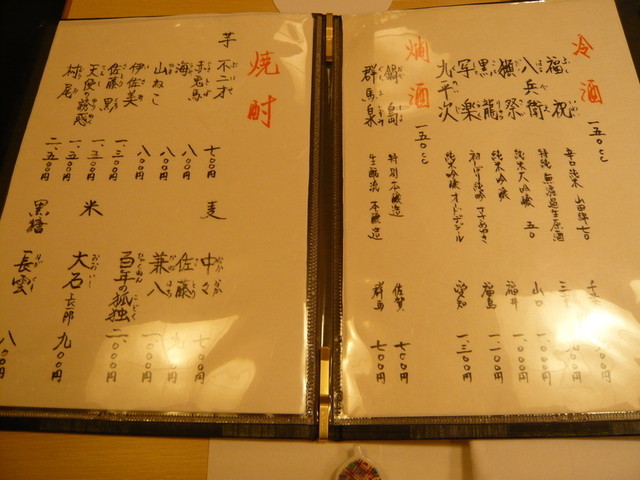 冷酒 一五〇cc
福祝 辛口純米 山田錦七〇
八兵衛 特純 無濾過生原酒 三
獺祭 純米大吟醸 五〇 山口 一、〇〇〇円
黒龍 純米吟醸 福井 一、一〇〇円
写楽 純米吟醸 福島 一、一〇〇円
九平次 純米吟醸 オードデジール 愛知 一、三〇〇円
燗酒 一五〇cc
鍋島 特別本醸造 佐賀 七〇〇円
群馬泉 生酛流 本醸造 群馬 七〇〇円
焼酎
芋
不二才 七〇〇円
赤兎馬 八〇〇円
海 八〇〇円
山ねこ 八〇〇円
伊佐美
佐藤 黒 一、三〇〇円
天使の誘惑 一、五〇〇円
村尾 二、五〇〇円
麦
中々 七〇〇円
佐藤
兼八 一、〇〇〇円
百年の孤独 二、〇〇〇円
米
大石 長郎 九〇〇円
黒糖
長雲 八〇〇円